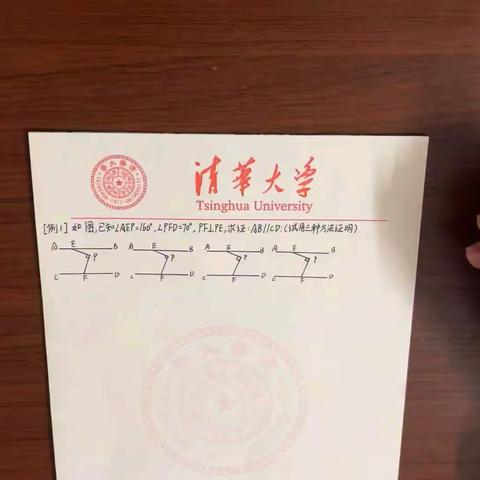 清華大学
Tsinghua University
[例1]如图,已知∠AEP=160°,∠PFD=70°,PF⊥PE,求证:AB//CD.(试用三种方法证明)
A E B A E B A E B A E B
P P P P
C F D C F D C F D C F D